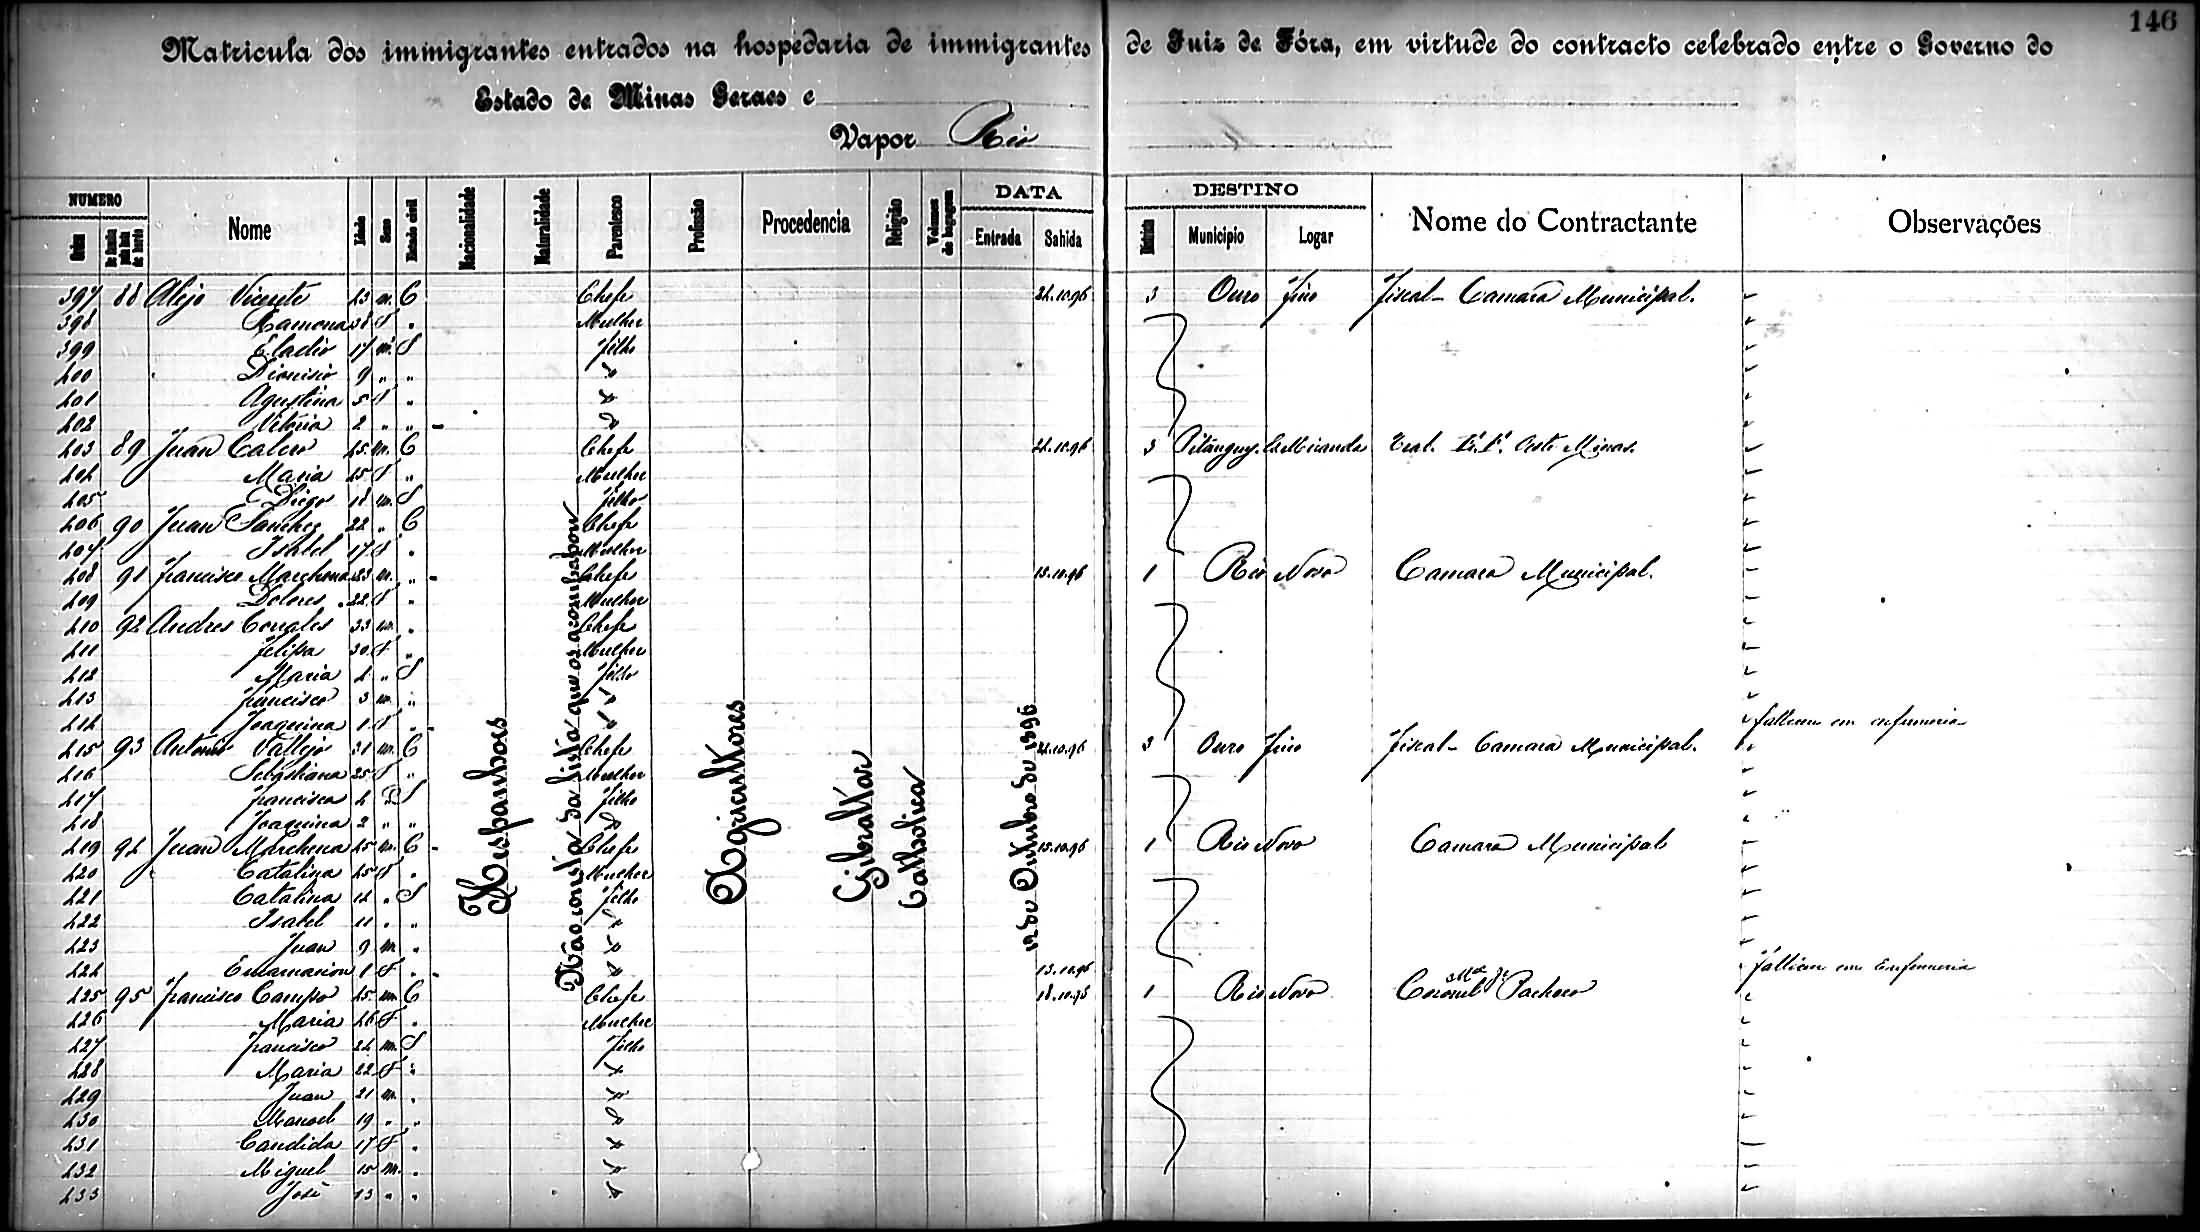 146
Matricula dos immigrantes entrados na hospedaria de immigrantes de Juiz de Fóra, em virtude do contracto celebrado entre o Governo do
Estado de Minas Geraes e
Vapor Rio
NUMERO Nome Idade Sexo Estado civil Nacionalidade Naturalidade Parentesco Profissão Procedencia Religião Volumes de bagagem DATA DESTINO Nome do Contractante Observações
Ordem Entrada Sahida Districto Municipio Logar
397 88 Alejo Vicente 43 m. C Chefe 22.10.96 3 Ouro Fino Fiscal - Camara Municipal.
398 Ramona 38 F " Mulher
399 Eladio 17 m. S Filho
400 Dionisio 9 " " "
401 Agustina 5 F " "
402 Vitoria 2 " " "
403 89 Juan Calero 45 m. C Chefe 22.10.96 3 Pitanguy. C. Miranda Trab. E. F. Oeste Minas.
404 Maria 45 F " Mulher
405 Diego 18 m. S Filho
406 90 Juan Sanchez 22 " C Chefe
407 Isabel 17 F " Mulher
408 91 Francisco Marchena 23 m. " Chefe 13.10.96 1 Rio Novo Camara Municipal.
409 Dolores 22 F " Mulher
410 92 Andres 33 m. " Chefe
411 Felipa 30 F " Mulher
412 Maria 4 " S Filho
413 Francisco 3 m. " "
414 Joaquina 1 F " " falleceu em enfermaria
415 93 Antonio Vallejo 31 m. C Chefe 22.10.96 3 Ouro Fino Fiscal - Camara Municipal.
416 Sebastiana 25 F " Mulher
417 Francisca 4 " S Filho
418 Joaquina 2 " " "
419 94 Juan Marchena 45 m. C Chefe 13.10.96 1 Rio Novo Camara Municipal
420 Catalina 45 F " Mulher
421 Catalina 14 " S Filho
422 Isabel 11 " " "
423 Juan 9 m " "
424 Encarnacion 1 F " " 13.10.96 falleceu em Enfermeria
425 95 Francisco Campo 45 m. C Chefe 18.10.96 1 Rio Novo Coronel Pacheco
426 Maria 46 F " Mulher
427 Francisco 24 m. S Filho
428 Maria 22 F " "
429 Juan 21 m. " "
430 Manoel 19 " " "
431 Candida 17 F " "
432 Miguel 15 m. " "
433 José 13 " " "
Hespanhoes
Não consta da lista que os acompanhou
Agricultores
Gibraltar
Catholica
12 de Outubro de 1896